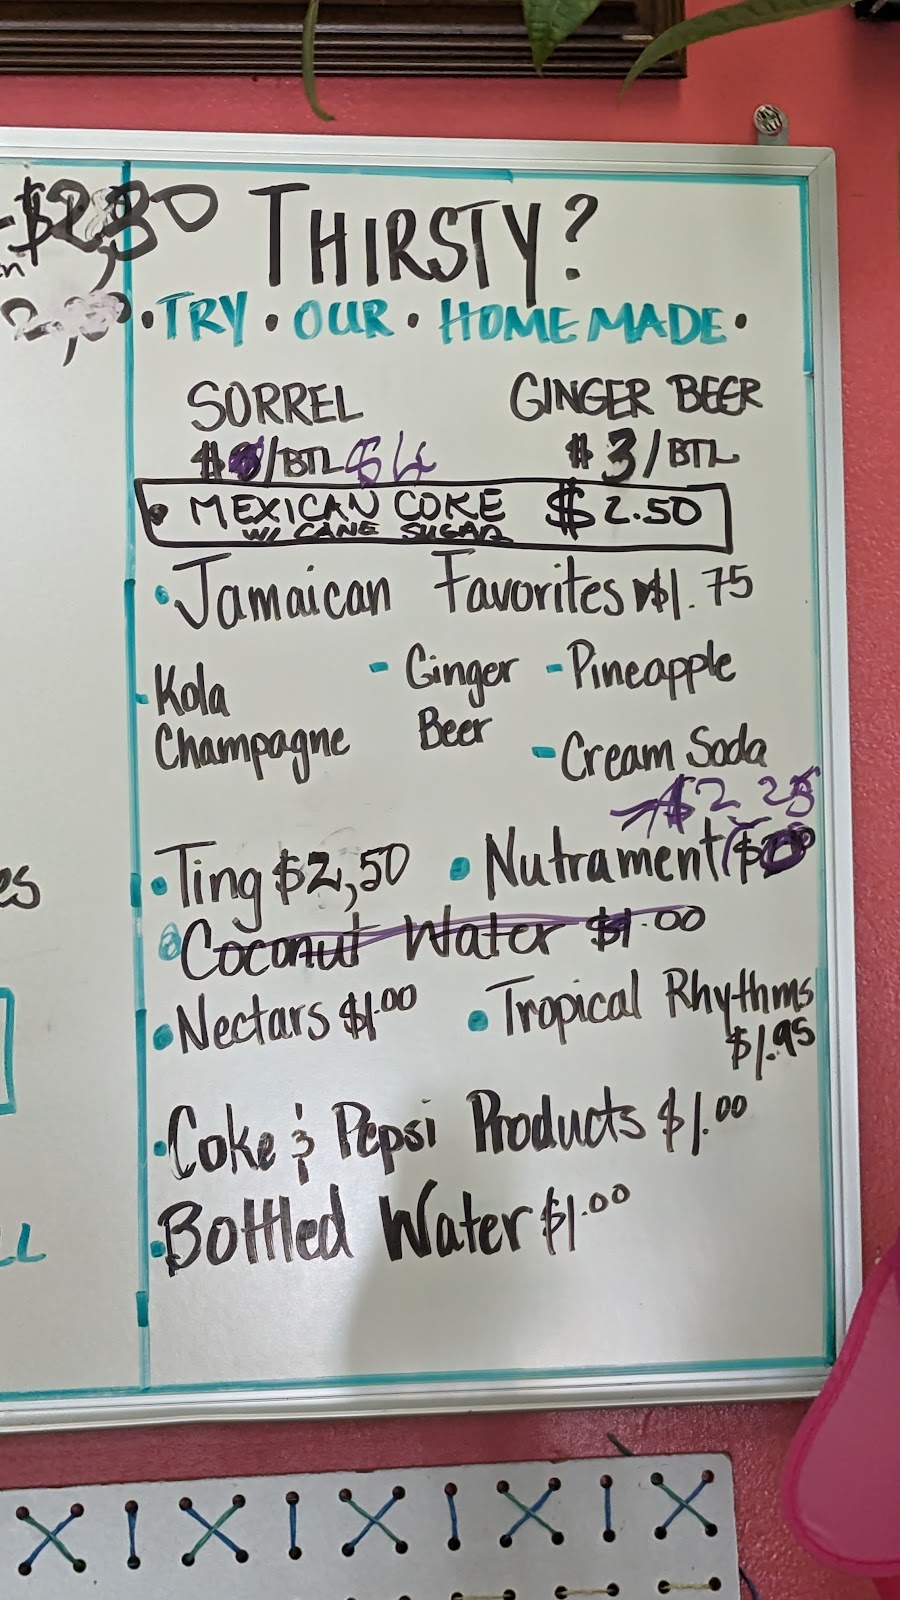 $2,30
THIRSTY?
• TRY • OUR • HOMEMADE •
SORREL
$ /BTL $4
GINGER BEER
$3/BTL
• MEXICAN COKE $2.50
W/ CANE SUGAR
• Jamaican Favorites $1.75
- Kola Champagne
- Ginger Beer
- Pineapple
- Cream Soda
$2.25
• Ting $2,50 • Nutrament
• Coconut Water $1.00
• Nectars $1.00 • Tropical Rhythms
$1.95
• Coke & Pepsi Products $1.00
• Bottled Water $1.00